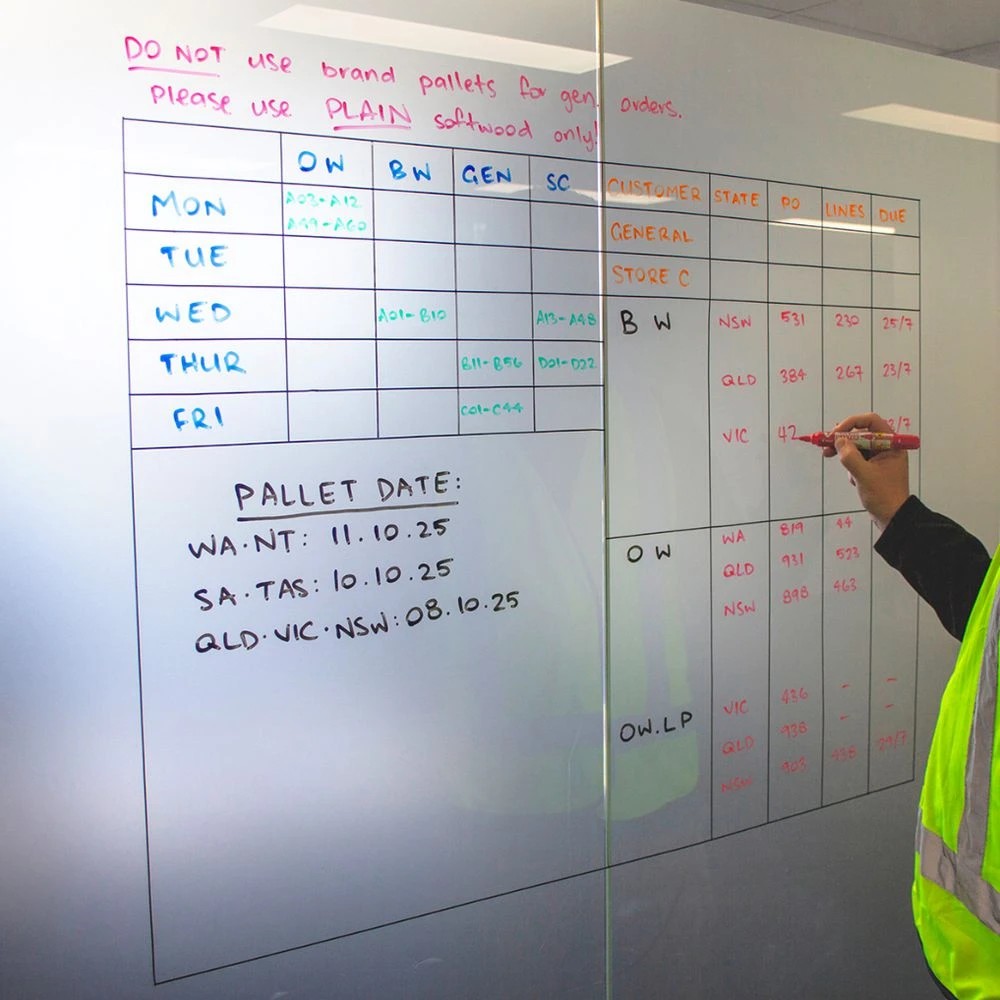 DO NOT use brand pallets for gen. orders.
Please use PLAIN softwood only!
OW BW GEN SC
MON A03-A12
A49-A60
TUE
WED A01-B10 A13-A48
THUR B11-B56 D01-D22
FRI C01-C44
PALLET DATE:
WA·NT: 11.10.25
SA·TAS: 10.10.25
QLD·VIC·NSW: 08.10.25
CUSTOMER STATE PO LINES DUE
GENERAL
STORE C
BW NSW 531 230 25/7
QLD 384 267 23/7
VIC 42
OW WA 819 44
QLD 931 523
NSW 898 463
VIC 436 - -
OW.LP QLD 938 - -
NSW 903 438 29/7